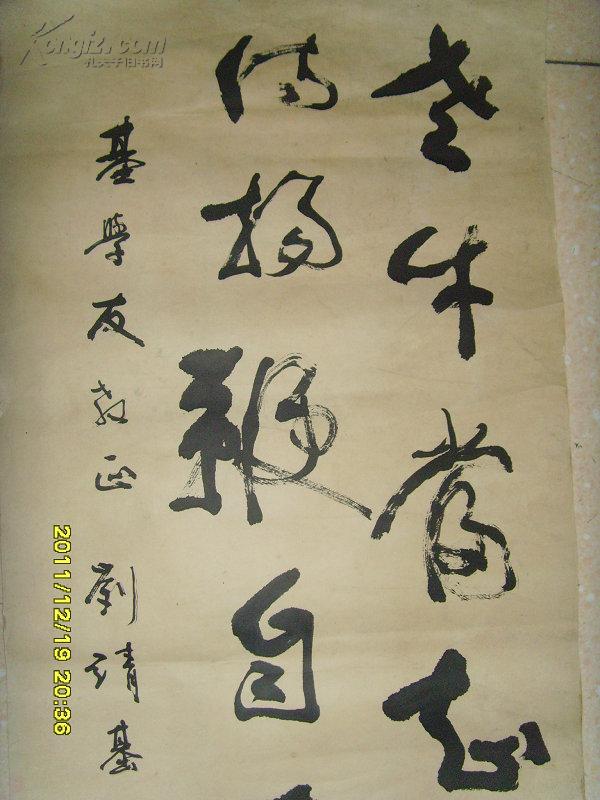 老牛當知
待揚鞭自
基學友教正 劉靖基
Kongfz.com
孔夫子旧书网
2011/12/19 20:36